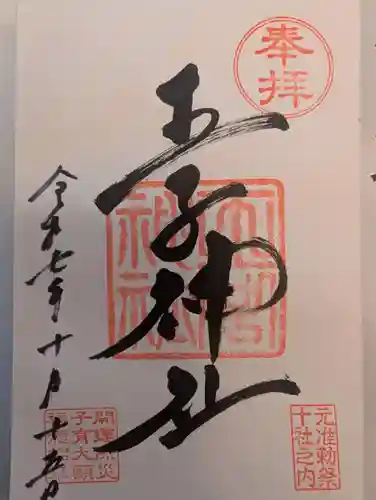 奉拝
王子神社
令和七年十月十五日
元准勅祭
十社之内
開運除災
子育大願